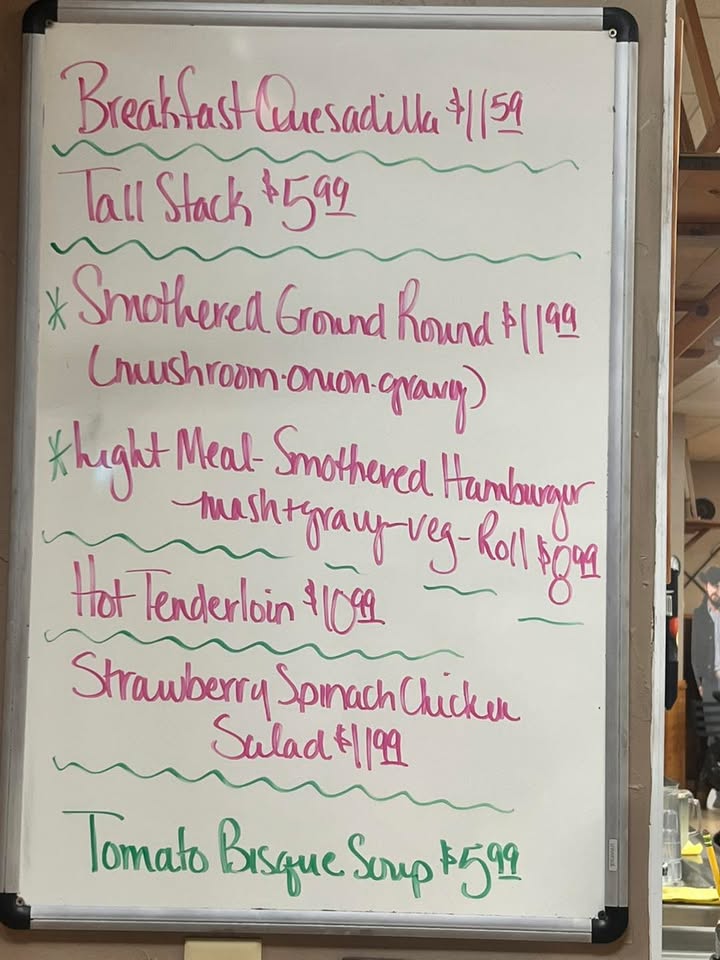 Breakfast Quesadilla $11.59
Tall Stack $5.99
* Smothered Ground Round $11.99
(mushroom-onion-gravy)
* Light Meal - Smothered Hamburger
- mash + gravy - veg - Roll $8.99
Hot Tenderloin $10.99
Strawberry Spinach Chicken
Salad $11.99
Tomato Bisque Soup $5.99